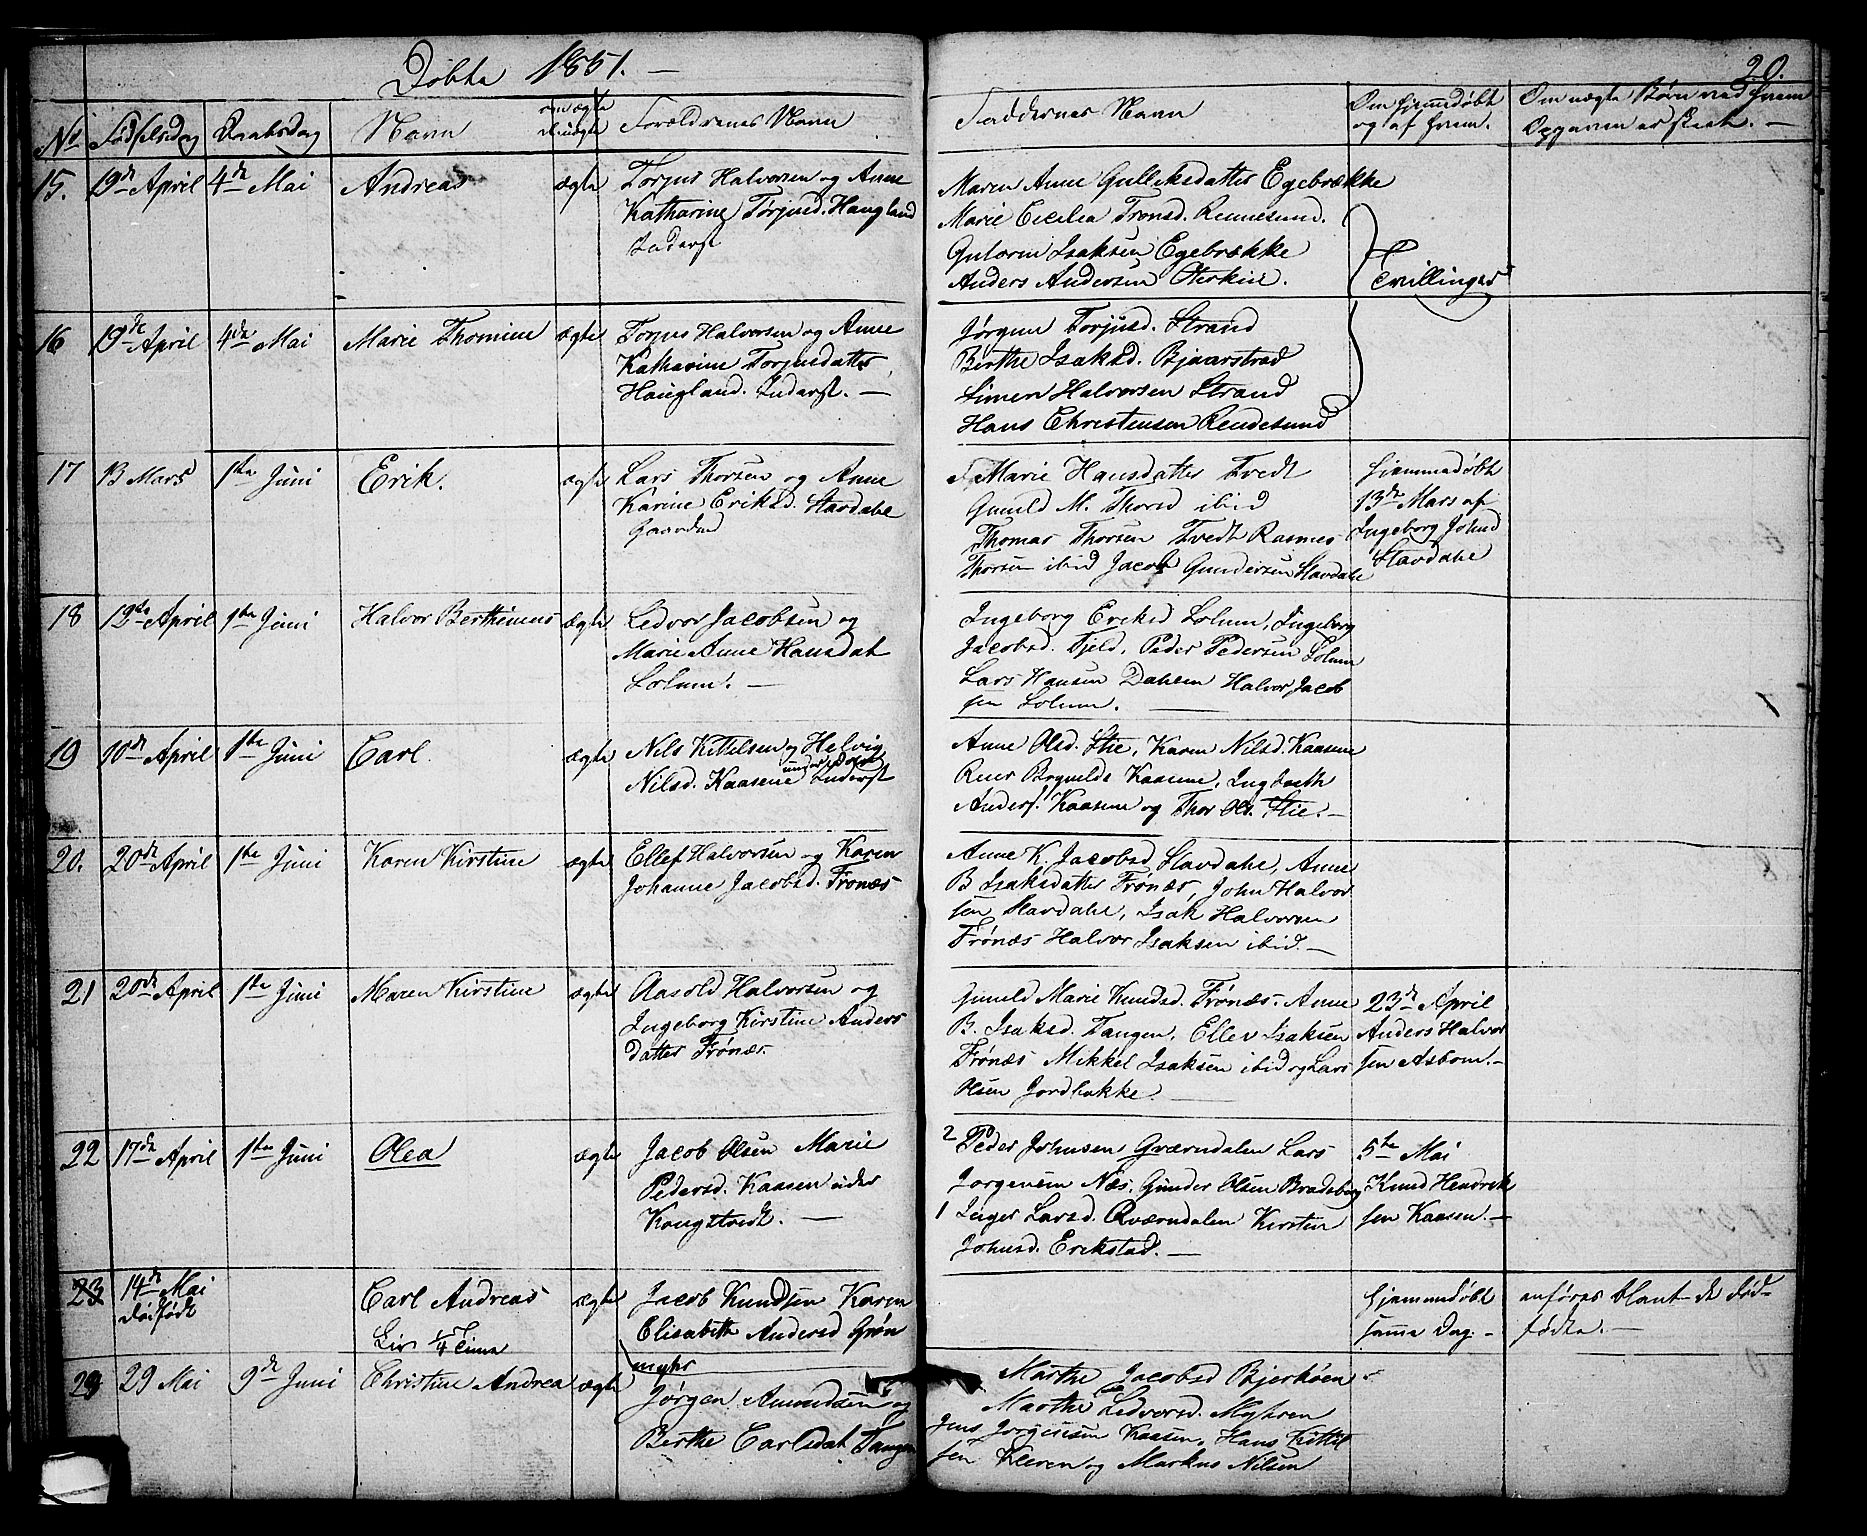 Döbte 1851. —
20.
No Fødselsdag Daabsdag Navn om ægte el. uægte Forældrenes Navn Faddernes Navn Om hjemmedøbt og af hvem. Om uægte Børn ved hvem Opgaven er skeet. —
15. 19de April 4de Mai Andreas ægte
Torjus Halvorsen og Anne
Katharine Torjusd. Haugland
Inderst
Maren Anne Gulleksdatter Egebrække
Marie Cecilia Tronsd. Rennesund.
Gutorm Isaksen Egebrække
Anders Andersen Oterkiil.
Tvillinger
16 19de April 4de Mai Marie Thomine ægte
Torjus Halvorsen og Anne
Katharine Torjusdatter
Haugland. Inderst. —
Jørgine Torjusd. Strand
Berthe Isaksd. Bjaarstrad
Simen Halvorsen Strand
Hans Christensen Rendesund
17 13 Mars 1ste Juni Erik. ægte
Lars Thorsen og Anne
Karine Eriksd. Stavdahl
Gaarden
Marie Hansdatter Tvedt
Gunild M. Thorsd ibid
Thomas Thorsen Tvedt Rasmus
Thorsen ibid Jacob Gundersen Stavdahl
hjemmedøbt
13de Mars af
Ingeborg Johnsd
Stavdahl
18 13de April 1ste Juni Halvor Berthinius ægte
Ledvor Jacobsen og
Marie Anne Hansdat
Solum. —
Ingeborg Eriksd Solum, Ingeborg
Jacobsd. Fjeld, Peder Pedersen Solum
Lars Hansen Dahlen Halvor Jacob
sen Solum. —
19 10de April 1ste Juni Carl ægte
Nils Kittelsen og Helvig
Nilsd. Kaasene Inderst
Anne Olsd. Stie, Karen Nilsd. Kaasene
Kaasene, Ingbreth
Anders. Kaasene og Thor Ols. Stie. —
20. 20de April 1ste Juni Karen Kirstine ægte
Ellef Halvorsen og Karen
Johanne Jacobsd. Frønæs
Anne K. Jacobsd Stavdahl, Anne
B Isaksdatter Frønæs, John Halvor
sen Stavdahl, Isak Halvorsen
Frønæs Halvor Isaksen ibid. —
21 20de April 1ste Juni Maren Kirstine ægte
Aasold Halvorsen og
Ingeborg Kirstine Anders
datter Frønæs.
Gunild Marie Knudsd. Frønæs. Anne
B. Isaksd. Tangen, Ellev Isaksen
Frønæs Mikkel Isaksen ibid og Lars
Olsen Jordbakke. —
23de April
Anders Halvor
sen Asbom. —
22 17de April 1ste Juni Olea ægte
Jacob Olsen Marie
Pedersd. Kaasen under
Kongstvedt. —
2 Peder Johnsen Qværndalen Lars
Jørgensen Næs. Gunder Olsen Bradsberg
1 Inger Larsd. Qværndalen Kirstin
Johnsd. Erikstad. —
5te Mai
Knud Hendrik
sen Kaasen. —
23 14de Mai
dødfødt
Carl Andreas ægte
Liv 1/4 Time
Jacob Knudsen Karen
Elisabeth Andersd Grøn
myhr
hjemmedøbt
samme Dag. —
anføres blant de død-
fødte. —
23 29 Mai 9de Juni Christine Andrea ægte
Jørgen Amundsen og
Berthe Carlsdat Tangen
Marthe Jacobsd Bjerkøen
Marthe Ledvorsd. Myhren
Jens Jørgensen Kaasen, Hans Kittil
sen Kleven og Markus Nilsen